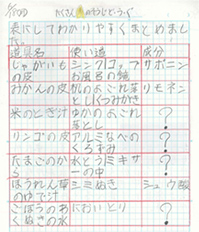 たくさんのおそうじどうぐ
表にしてわかりやすくまとめまし
た。
道具名 使い道 成分
じゃがいもの皮 シンク コップ お風呂の鏡 サポニン
みかんの皮 机のよごれ落とし くつみがき リモネン
米のとぎ汁 ゆかのよごれ落とし ?
リンゴの皮 アルミなべのくろずみ ?
たまごのから 水とう ミキサーの中 ?
ほうれん草のゆで汁 シミぬき シュウ酸
ごぼうのあくぬきの水 においとり ?